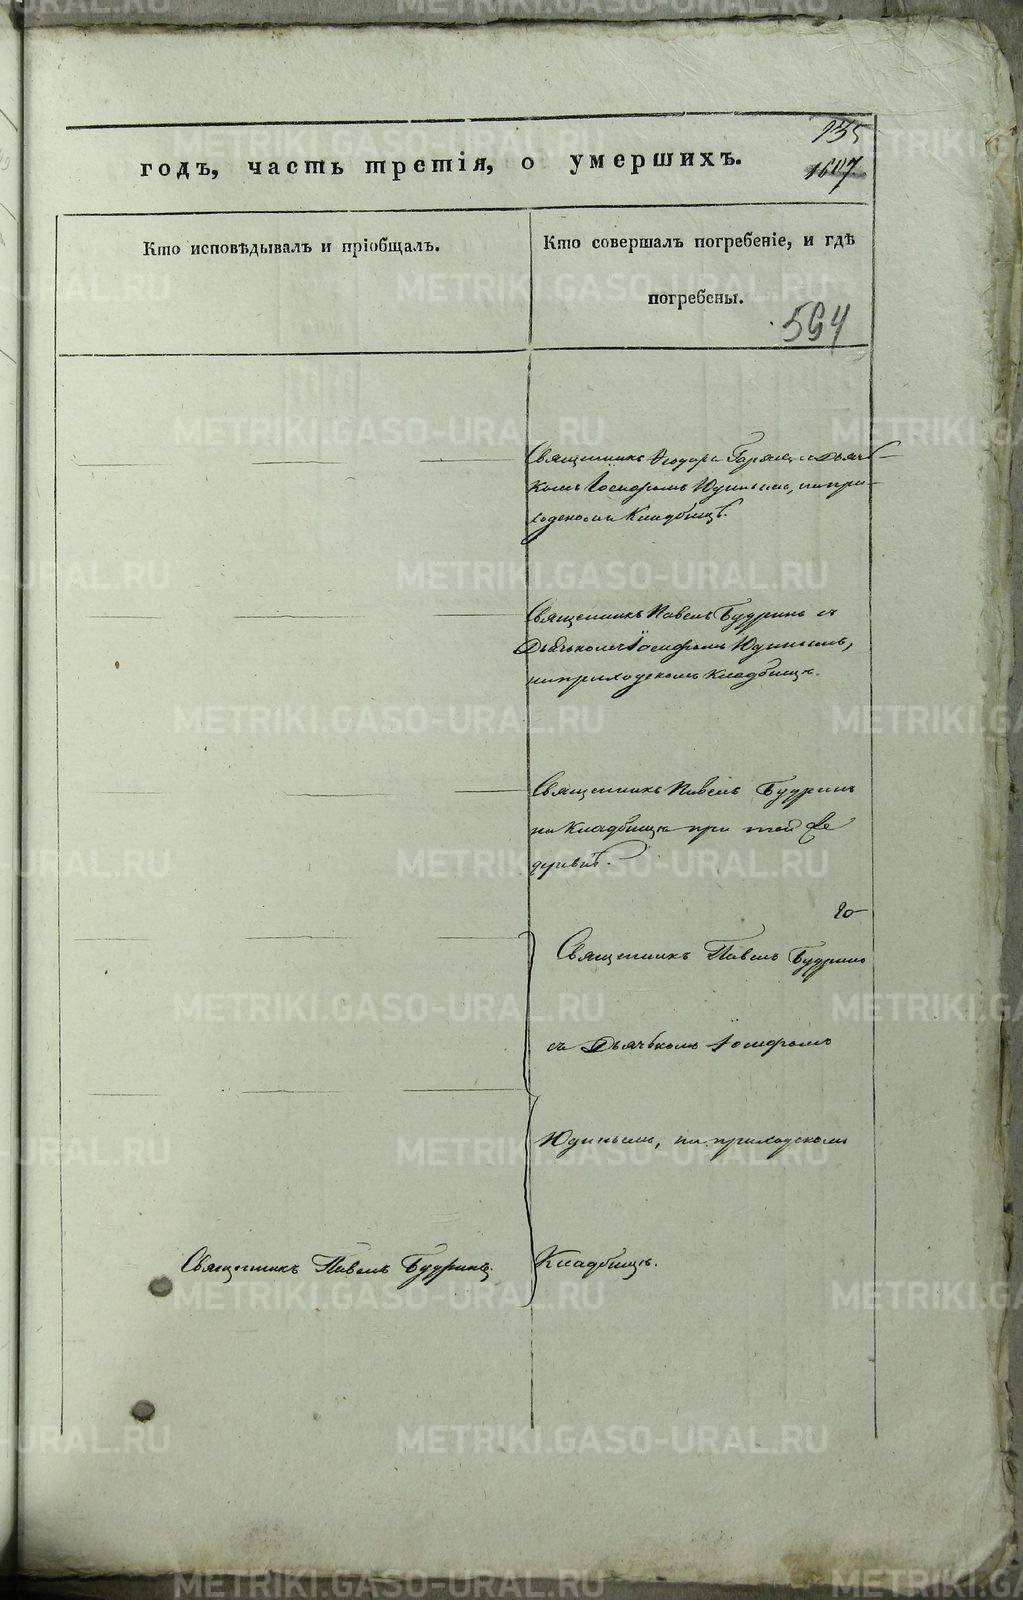 235
1607.
годъ, часть третія, о умершихъ.
Кто исповѣдывалъ и пріобщалъ.
Кто совершалъ погребеніе, и гдѣ
погребены.
594
Священникъ Ѳеодоръ с Дьячь-
комъ Іосифомъ Юдинымъ, на при-
ходскомъ Кладбищѣ.
Священникъ Павелъ Будринъ съ
Дьячькомъ Іосифомъ Юдинымъ,
на приходскомъ Кладбищѣ.
Священникъ Павелъ Будринъ
на Кладбищѣ при той же
деревнѣ.
Священникъ Павелъ Будринъ
съ Дьячькомъ Іосифомъ
Юдинымъ, на приходскомъ
Священникъ Павелъ Будринъ.
Кладбищѣ.
METRIKI.GASO-URAL.RU